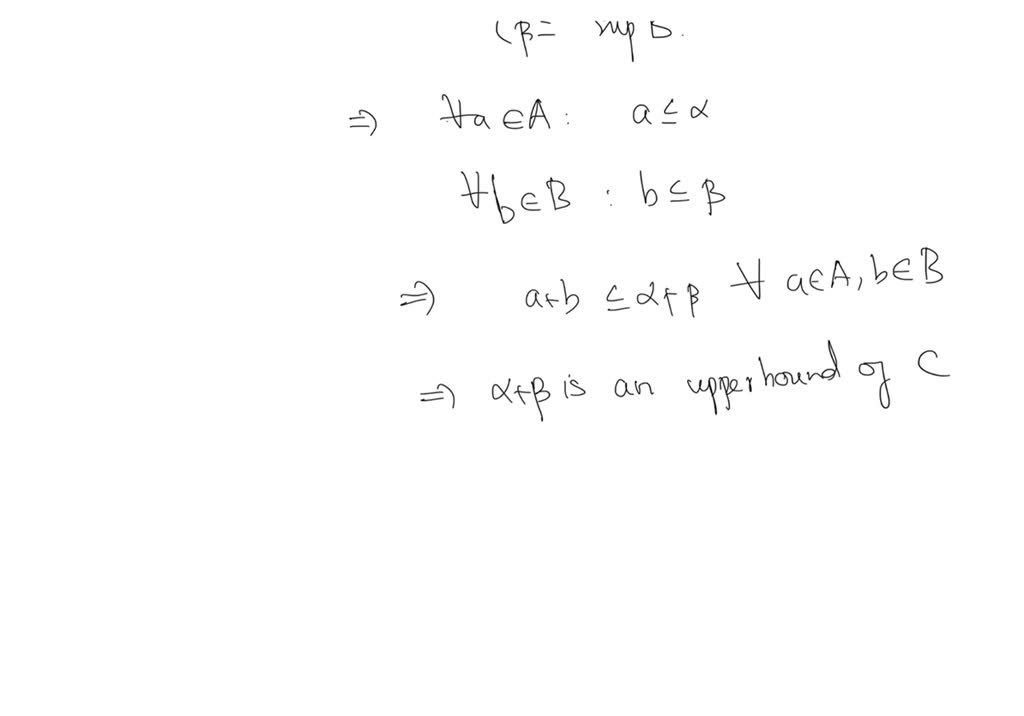 β = sup
⇒ ∀a ∈ A : a ≤ α
∀b ∈ B : b ≤ β
⇒ a+b ≤ α+β ∀ a∈A, b∈B
⇒ α+β is an upper bound of C